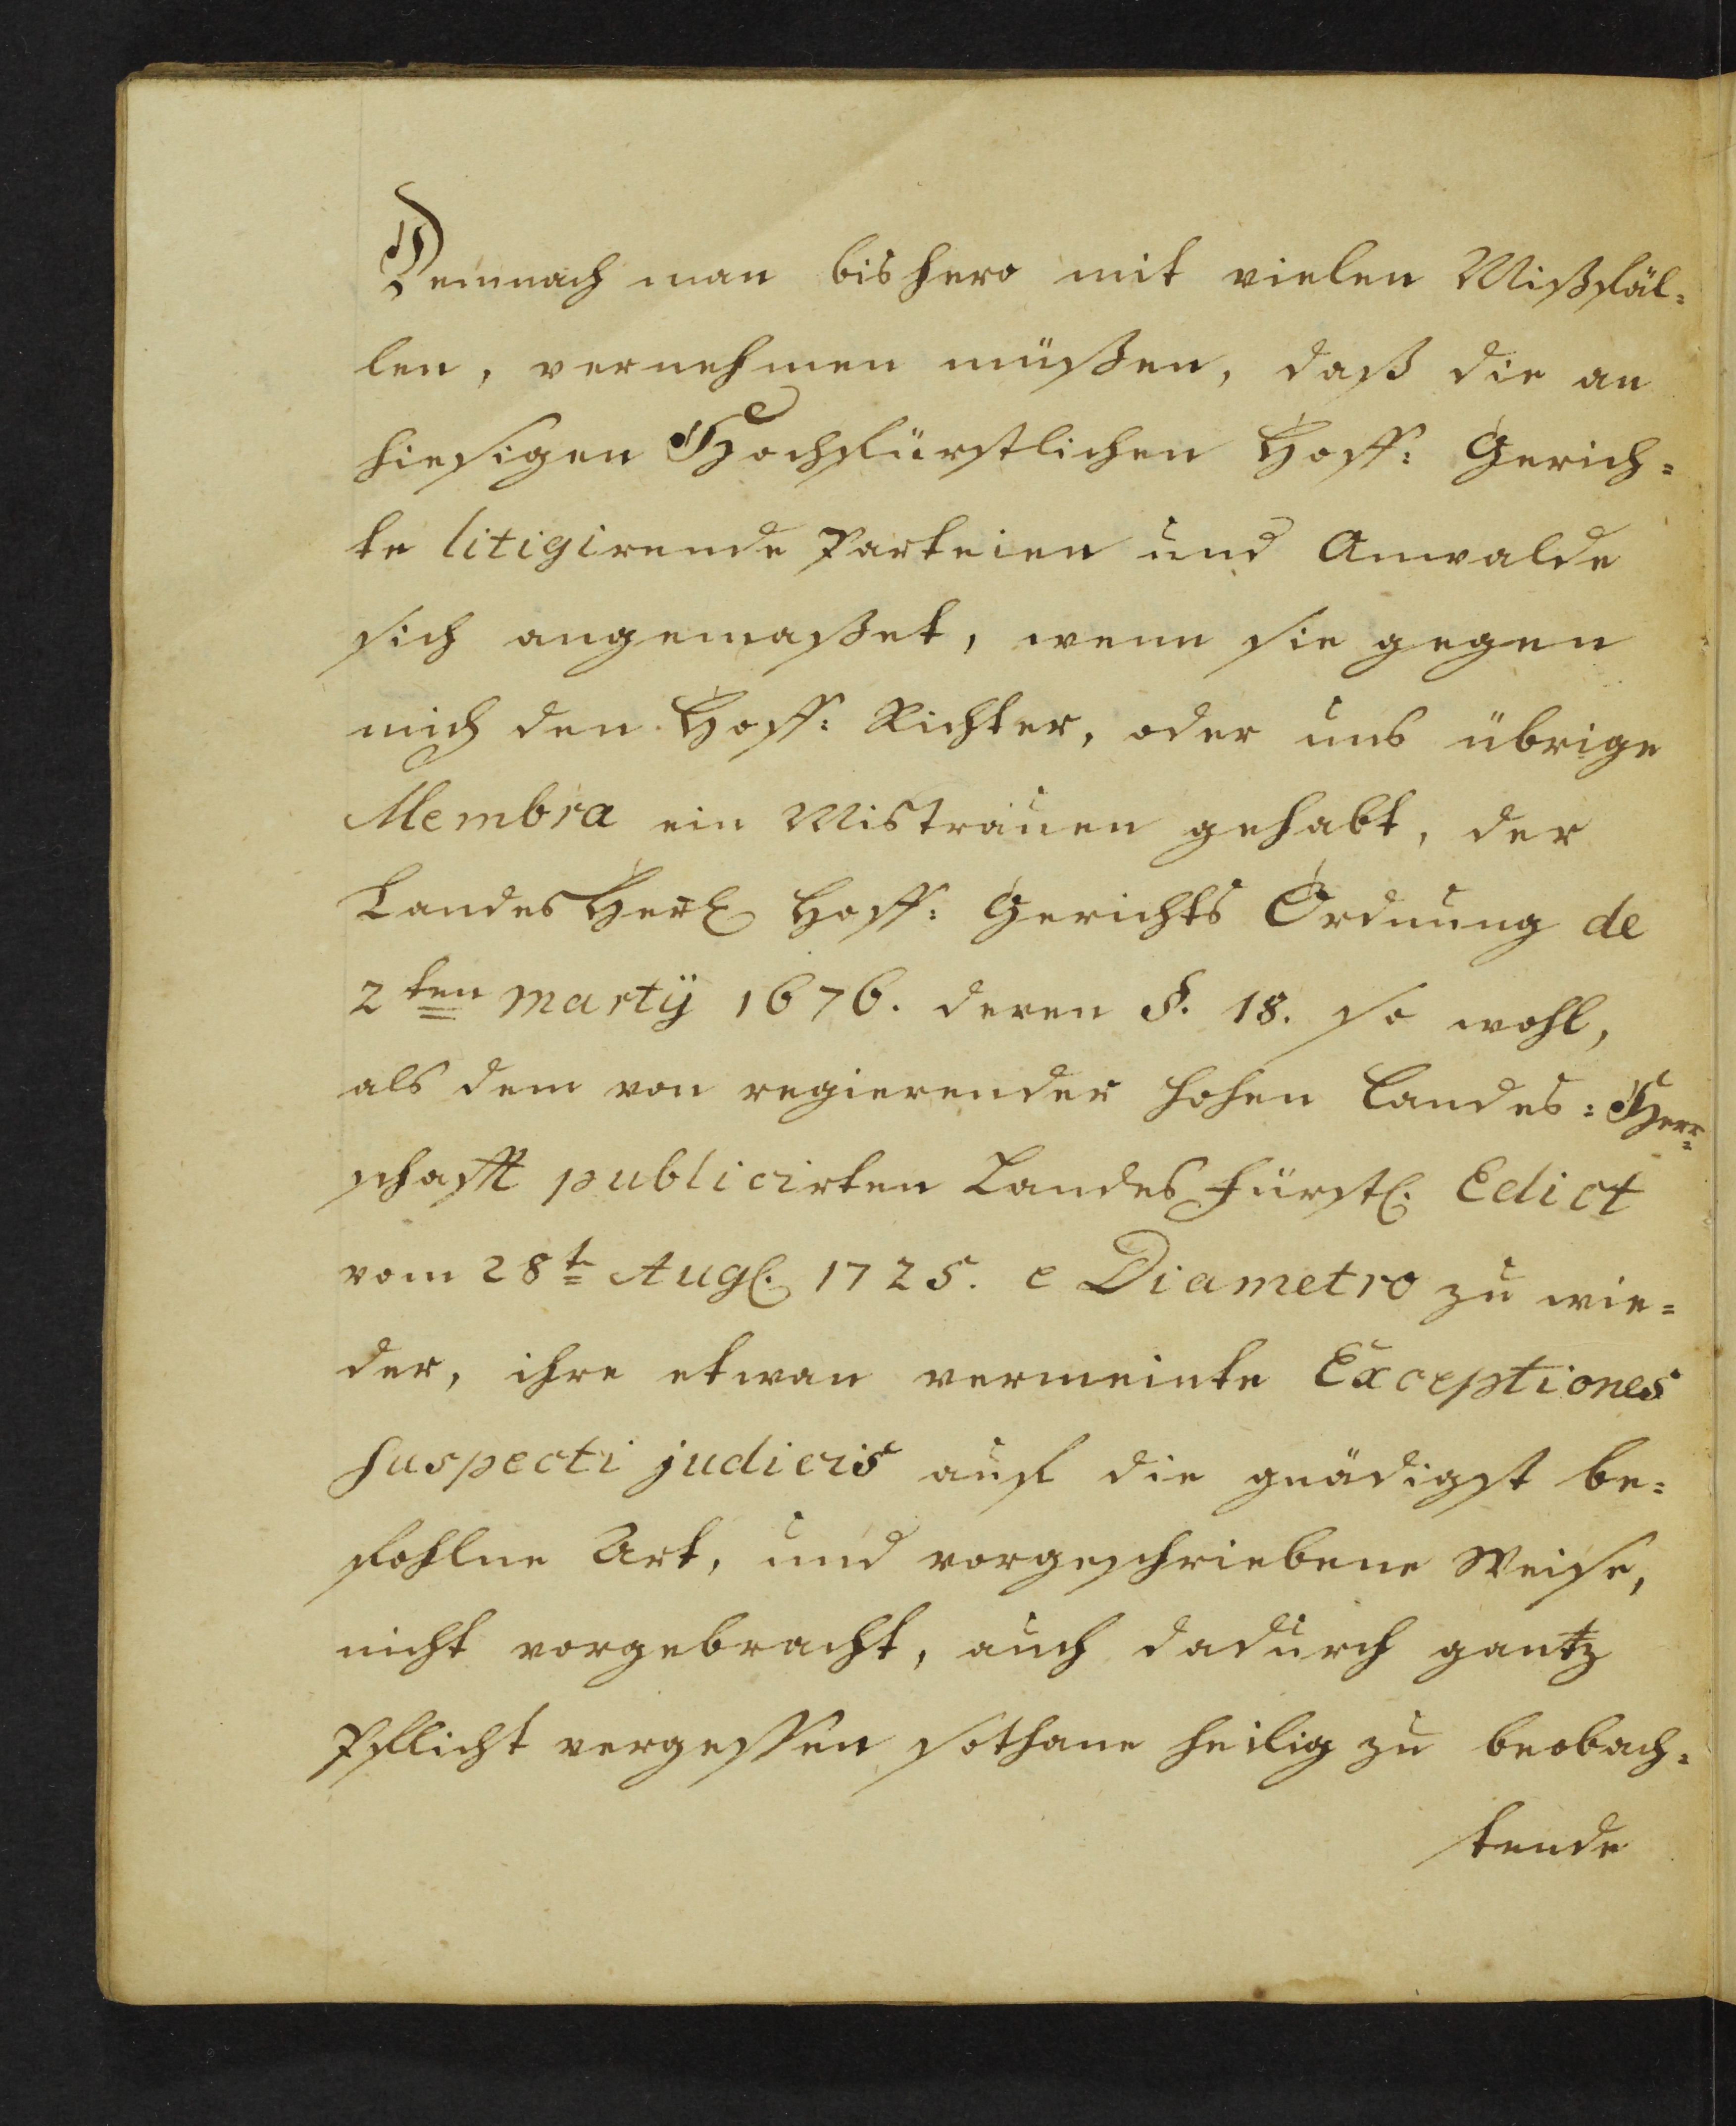 Demnach man bishero mit vielen Mißfäl=
len, vernehmen müßen, daß die an
hiesigen Hochfürstlichen Hoff: Gerich=
te litigirende Parteien und Anwalde
sich angemaßet, wenn sie gegen
mich den Hoff: Richter, oder uns übrige
Membra ein Mistrauen gehabt, der
Landes Herl Hoff: Gerichts Ordnung de
2ten martij 1676. deren §. 18. so wohl,
als dem von regierender hohen Landes: Herr=
schafft publicirten Landes Fürstl. Edict
vom 28t Augl. 1725. e Diametro zu wie=
der, ihre etwan vermeinte Exceptiones
suspecti judicis auf die gnädigst be=
fohlne Art, und vorgeschriebene Weise,
nicht vorgebracht, auch dadurch gantz
Pflicht vergessen sothane heilig zu beobach=
tende